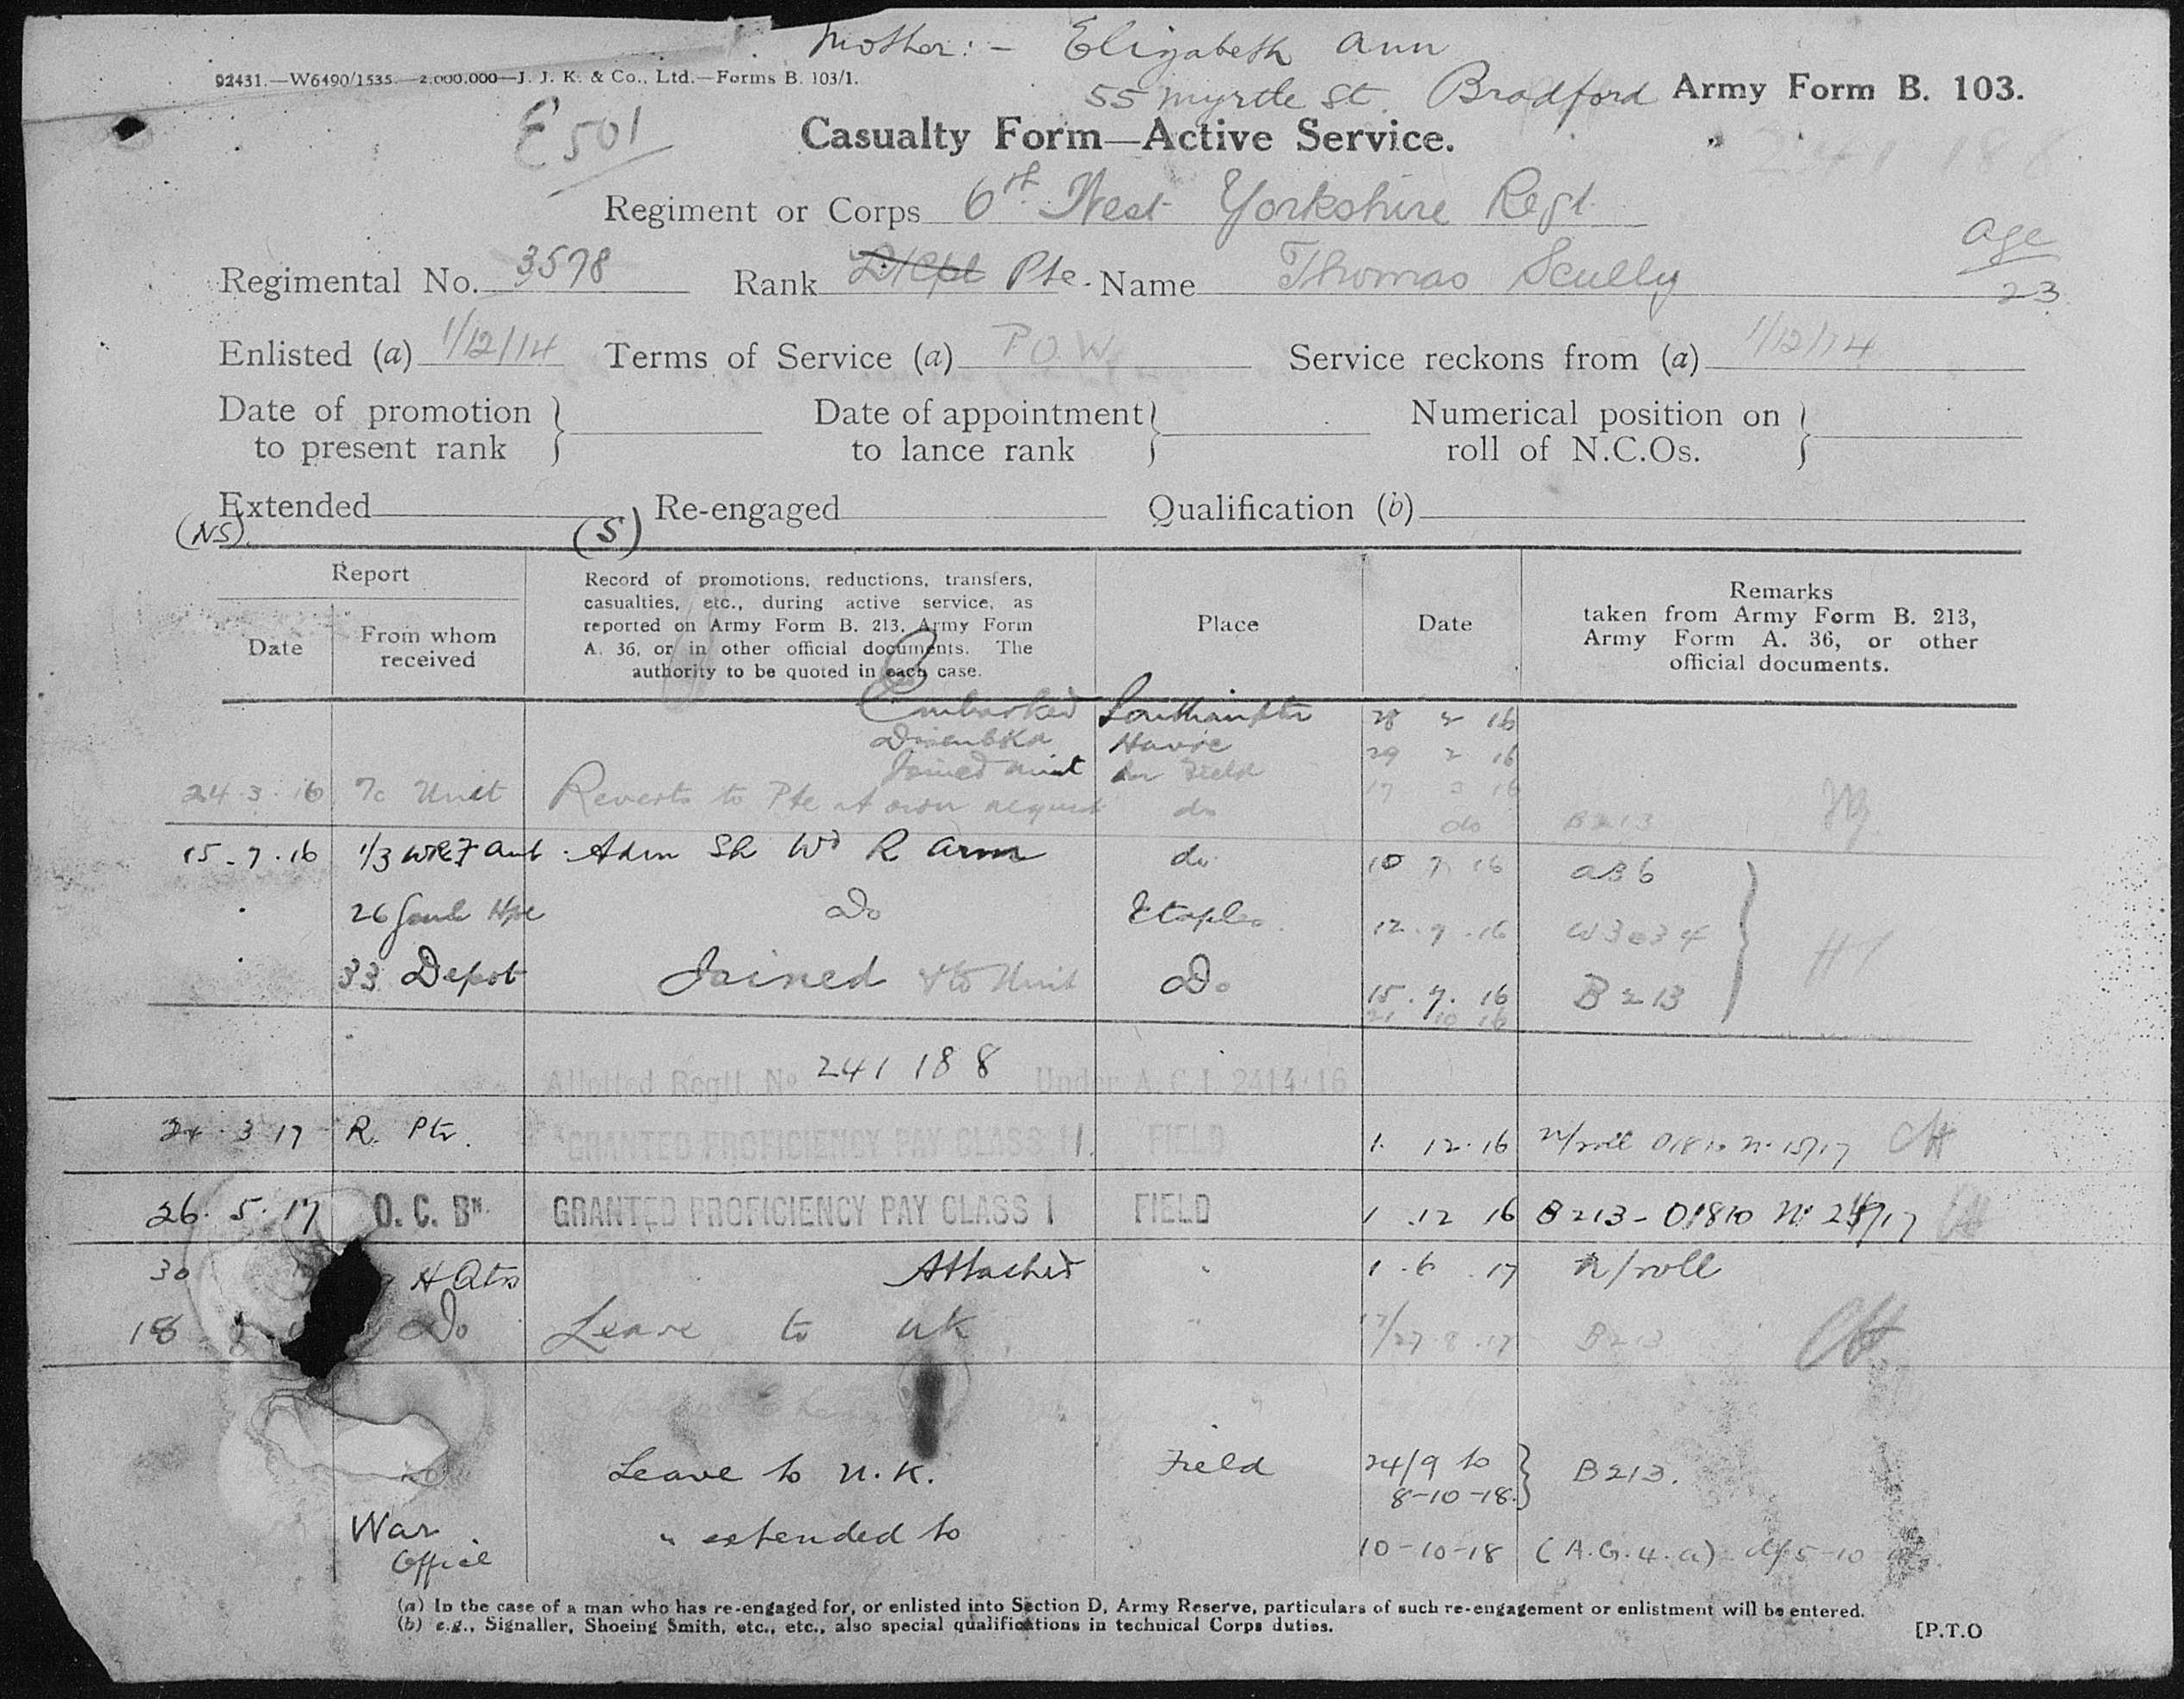 Mother :- Elizabeth Ann
92431.—W6490/1535.—2,000,000—J. J. K. & Co., Ltd.—Forms B. 103/1.
55 Myrtle St. Bradford Army Form B. 103.
E501
Casualty Form—Active Service.
241188
Regiment or Corps 6th West Yorkshire Regt.
Age 23
Regimental No. 3578 Rank L/Cpl Pte. Name Thomas Scully
Enlisted (a) 1/12/14 Terms of Service (a) P.O.W. Service reckons from (a) 1/12/14
Date of promotion to present rank Date of appointment to lance rank Numerical position on roll of N.C.Os.
Extended Re-engaged Qualification (b)
(NS). (S)
Report
Date
From whom received
Record of promotions, reductions, transfers,
casualties, etc., during active service, as
reported on Army Form B. 213, Army Form
A. 36, or in other official documents. The
authority to be quoted in each case.
Place
Date
Remarks
taken from Army Form B. 213,
Army Form A. 36, or other
official documents.
Embarked Southampton 28 2 16
Disembkd Havre 29 2 16
Joined Unit In Field 17 3 16
24.3.16 Unit Reverts to Pte at own request do do B213
15.7.16 1/3 WRF Amb Adm Sh Wd R Arm do 10 7 16 A36
26 Genl Hpl Do Etaples 12.7.16 W3034
33 Depot Joined Unit Do 15.7.16 B213
21 10 16
Allotted Regtl. No 241188 Under A.C.I. 2414.16
24.3.17 R. Ptr. GRANTED PROFICIENCY PAY CLASS II. FIELD 1. 12.16 n/roll
26.5.17 O. C. BN. GRANTED PROFICIENCY PAY CLASS I FIELD 1.12 16 B213 - 01810
30 H Qtrs Attached " 1.6.17 n/roll
18 Do Leave to UK " 17/27.8.17 B213
Leave to U.K. Field 24/9 to 8-10-18. B213.
War Office " extended to 10-10-18 (A.G.4.a)
(a) In the case of a man who has re-engaged for, or enlisted into Section D, Army Reserve, particulars of such re-engagement or enlistment will be entered.
(b) e.g., Signaller, Shoeing Smith, etc., etc., also special qualifications in technical Corps duties.
[P.T.O